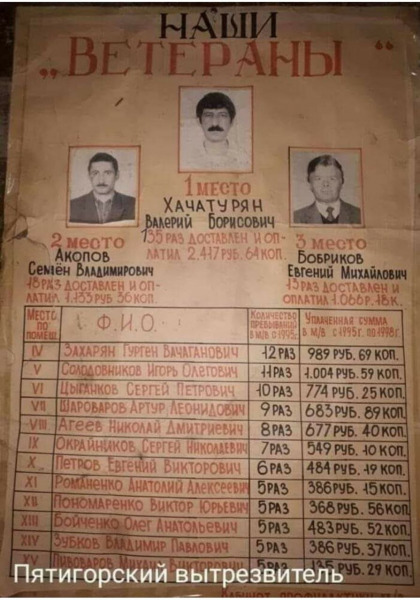 НАШИ
„ВЕТЕРАНЫ“
1 МЕСТО
ХАЧАТУРЯН
ВАЛЕРИЙ БОРИСОВИЧ
РАЗ ДОСТАВЛЕН И ОП-
ЛАТИЛ 2.417 РУБ. 64 КОП.
2 МЕСТО
АКОПОВ
СЕМЁН ВЛАДИМИРОВИЧ
18 РАЗ ДОСТАВЛЕН И ОП-
ЛАТИЛ 1.133 РУБ 36 КОП.
3 МЕСТО
БОБРИКОВ
ЕВГЕНИЙ МИХАЙЛОВИЧ
13 РАЗ ДОСТАВЛЕН И
ОПЛАТИЛ 1.066 Р. 18 К.
МЕСТО ПО ПОМЕЩ. Ф.И.О. КОЛИЧЕСТВО ПРЕБЫВАНИЙ В М/В С 1995Г. УПЛАЧЕННАЯ СУММА В М/В С 1995Г. ПО 1998Г.
IV ЗАХАРЯН ГУРГЕН ВАЧАГАНОВИЧ 12 РАЗ 989 РУБ. 69 КОП.
V СОЛОДОВНИКОВ ИГОРЬ ОЛЕГОВИЧ 11 РАЗ 1.004 РУБ. 59 КОП.
VI ЦЫГАНКОВ СЕРГЕЙ ПЕТРОВИЧ 10 РАЗ 774 РУБ. 25 КОП.
VII ШАРОВАРОВ АРТУР ЛЕОНИДОВИЧ 9 РАЗ 683 РУБ. 89 КОП.
VIII АГЕЕВ НИКОЛАЙ ДМИТРИЕВИЧ 8 РАЗ 677 РУБ. 40 КОП.
IX ОКРАЙНИКОВ СЕРГЕЙ НИКОЛАЕВИЧ 7 РАЗ 549 РУБ. 10 КОП.
X ПЕТРОВ ЕВГЕНИЙ ВИКТОРОВИЧ 6 РАЗ 484 РУБ. 19 КОП.
XI РОМАНЕНКО АНАТОЛИЙ АЛЕКСЕЕВИЧ 5 РАЗ 386 РУБ. 15 КОП.
XII ПОНОМАРЕНКО ВИКТОР ЮРЬЕВИЧ 5 РАЗ 368 РУБ. 56 КОП.
XIII БОЙЧЕНКО ОЛЕГ АНАТОЛЬЕВИЧ 5 РАЗ 483 РУБ. 52 КОП.
XIV ЗУБКОВ ВЛАДИМИР ПАВЛОВИЧ 5 РАЗ 386 РУБ. 37 КОП.
XV ПИВОВАРОВ МИХАИЛ ВИКТОРОВИЧ 5 РАЗ РУБ. 29 КОП.
Пятигорский вытрезвитель